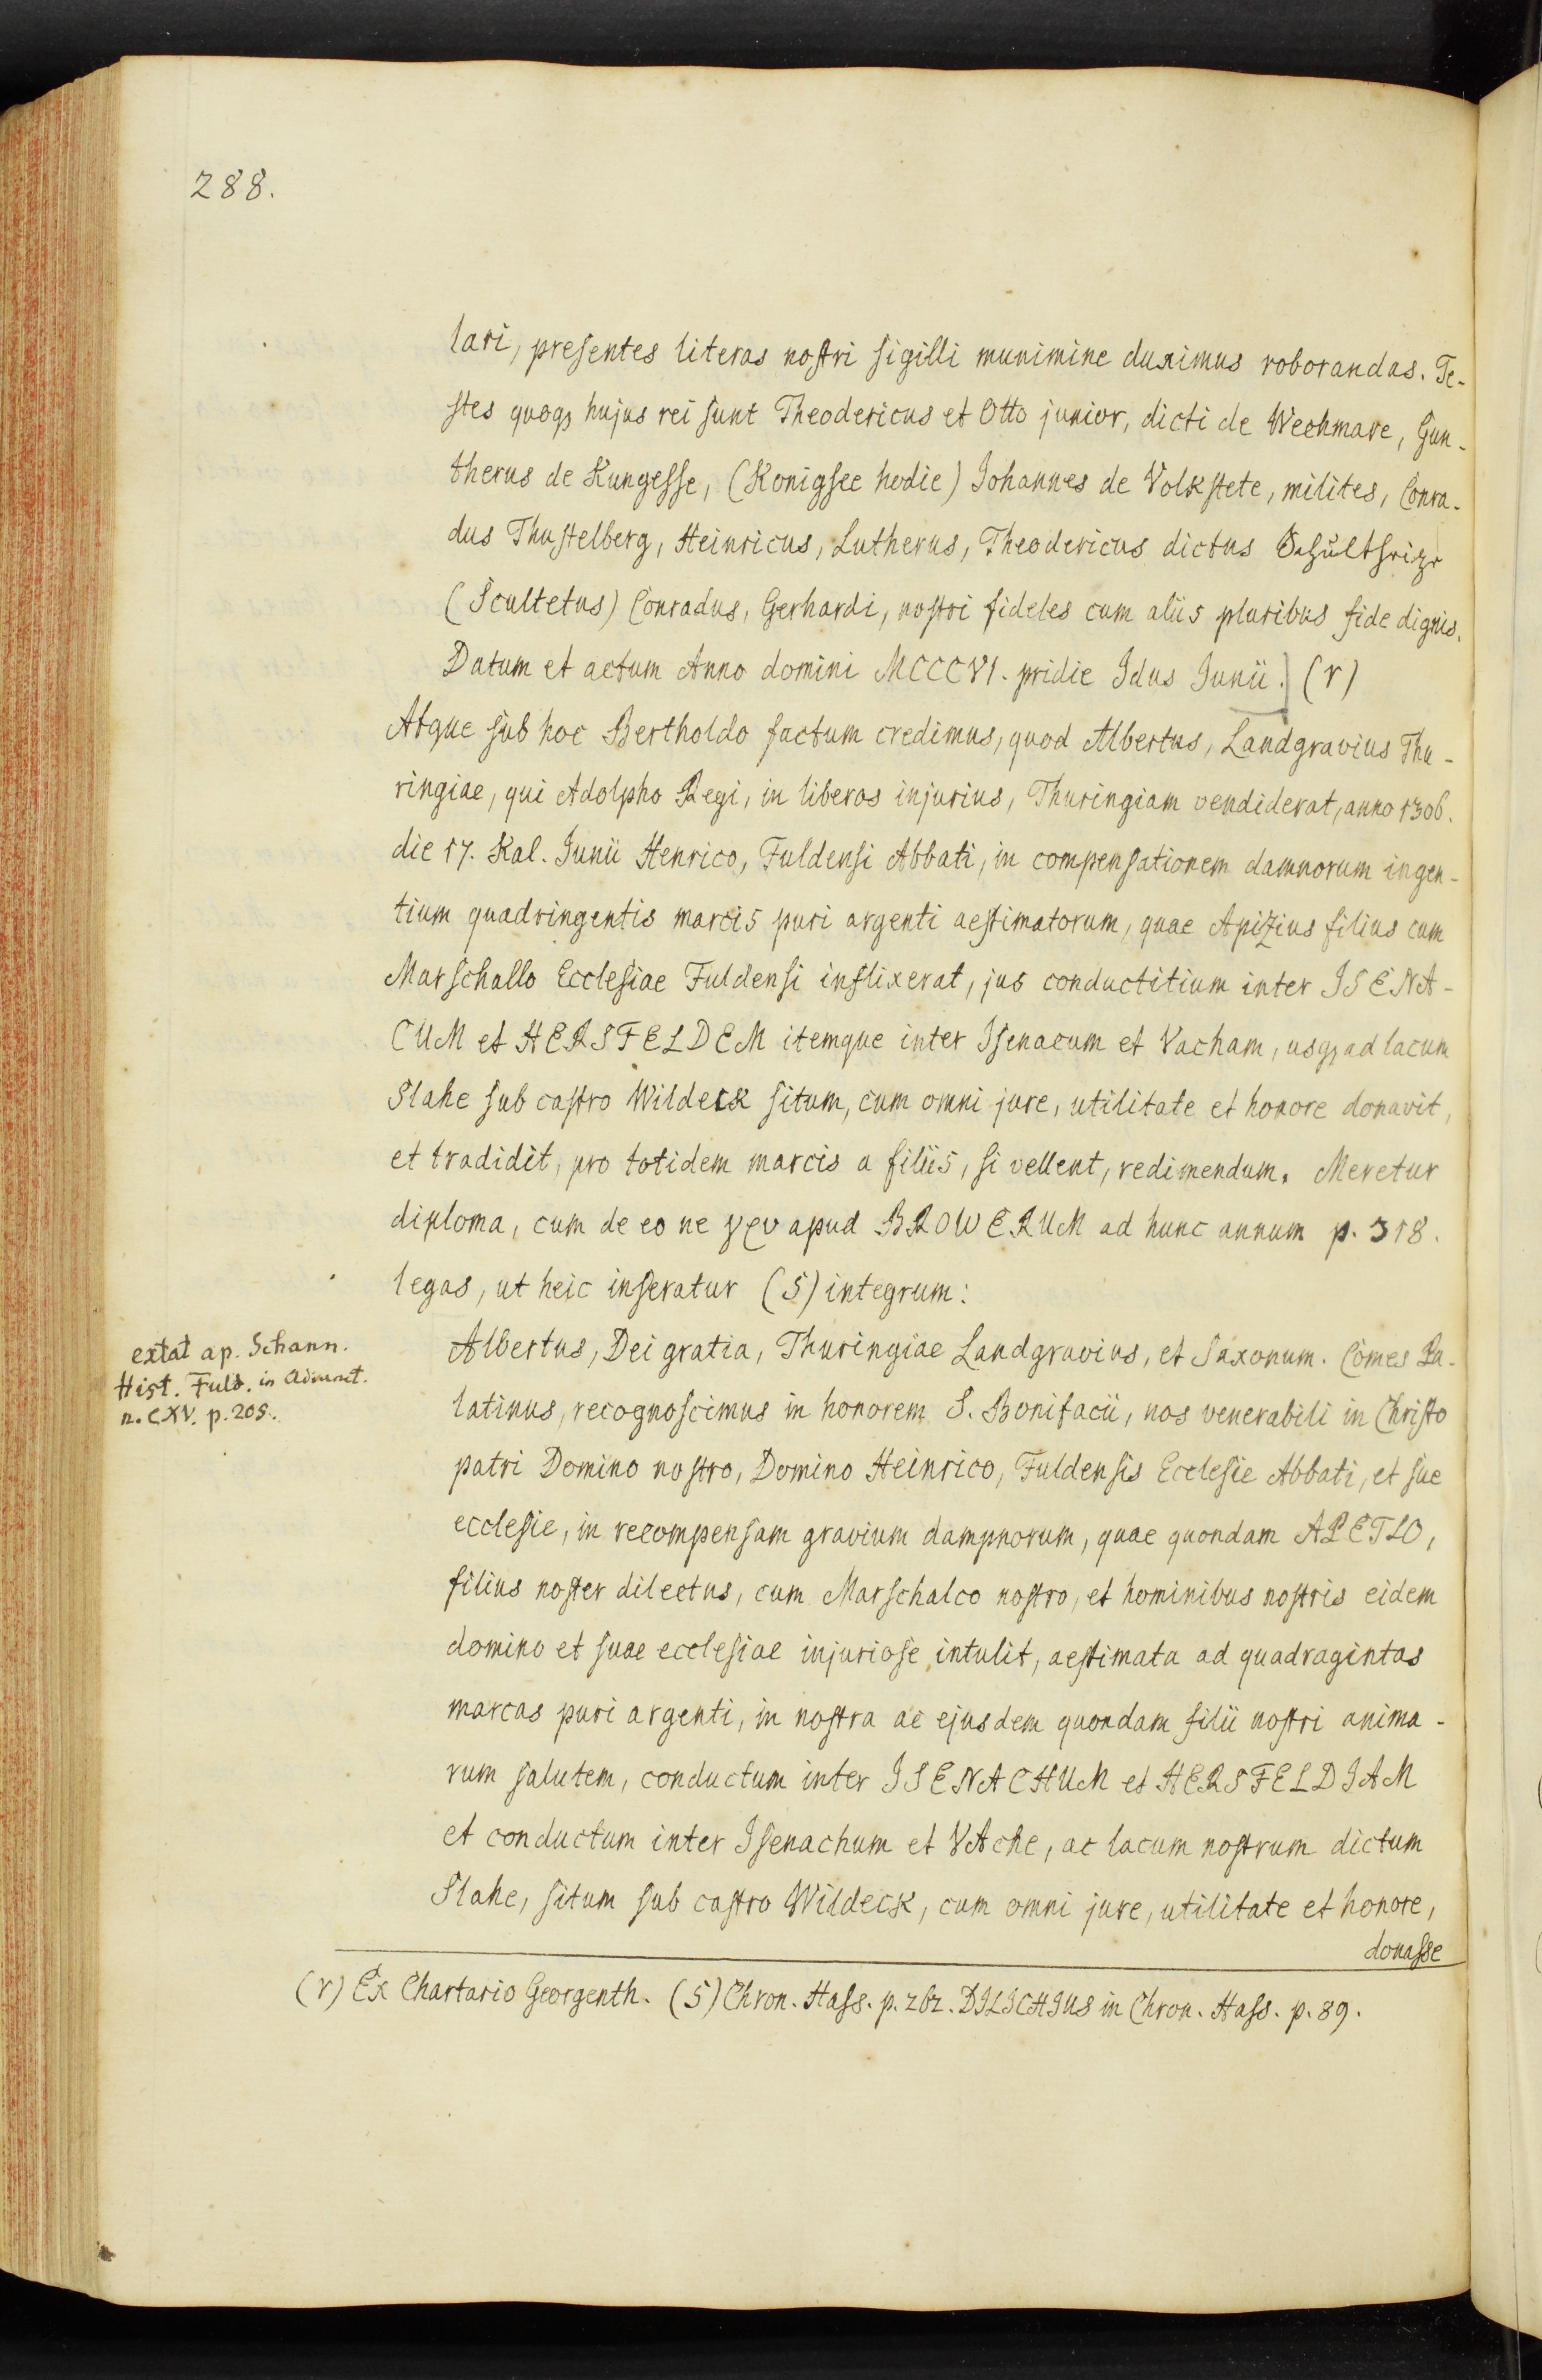 288.
lari, presentes literas nostri sigilli munimine duximus roborandas. Te-
stes quoqꝫ hujus rei sunt Theodericus et Otto junior, dicti de Wechmare, Gun-
therus de Kungesse, (Konigsee hodie) Johannes de Volkstete, milites, Conra-
dus Thustelberg, Heinricus, Lutherus, Theodericus dictus
(Scultetus) Conradus, Gerhardi, nostri fideles cum aliis pluribus fide dignis.
Datum et actum Anno domini MCCCVI. pridie Idus Junii.] (r)
Atque sub hoc Bertholdo factum credimus, quod Albertus, Landgravius Thu-
ringiae, qui Adolpho Regi, in liberos injurius, Thuringiam vendiderat, anno 1306.
die 17. Kal. Junii Henrico, Fuldensi Abbati, in compensationem damnorum ingen-
tium quadringentis marcis puri argenti aestimatorum, quae Apizius filius cum
Marschallo Ecclesiae Fuldensi inflixerat, jus conductitium inter ISENA-
CUM et HERSFELDEM itemque inter Isenacum et Vacham, usqꝫ ad lacum
Slahe sub castro Wildeck situm, cum omni jure, utilitate et honore donavit,
et tradidit, pro totidem marcis a filiis, si vellent, redimendum. Meretur
diploma, cum de eo ne γρυ apud BROWERUM ad hunc annum p. 318.
legas, ut heic inseratur (s) integrum:
extat ap. Schann.
Hist. Fuld. in
n. CXV. p. 205.
Albertus, Dei gratia, Thuringiae Landgravius, et Saxonum. Comes Pa-
latinus, recognoscimus in honorem S. Bonifacii, nos venerabili in Christo
patri Domino nostro, Domino Heinrico, Fuldensis Ecclesie Abbati, et sue
ecclesie, in recompensam gravium dampnorum, quae quondam APETLO,
filius noster dilectus, cum Marschalco nostro, et hominibus nostris eidem
domino et suae ecclesiae injuriose intulit, aestimata ad quadragintas
marcas puri argenti, in nostra ac ejusdem quondam filii nostri anima-
rum salutem, conductum inter ISENACHUM et HERSFELDIAM
et conductum inter Isenachum et VAche, ac lacum nostrum dictum
Slahe, situm sub castro Wildeck, cum omni jure, utilitate et honore,
donasse
(r) Ex Chartario Georgenth. (s) Chron. Hass. p. 262. DILICHIUS in Chron. Hass. p. 89.